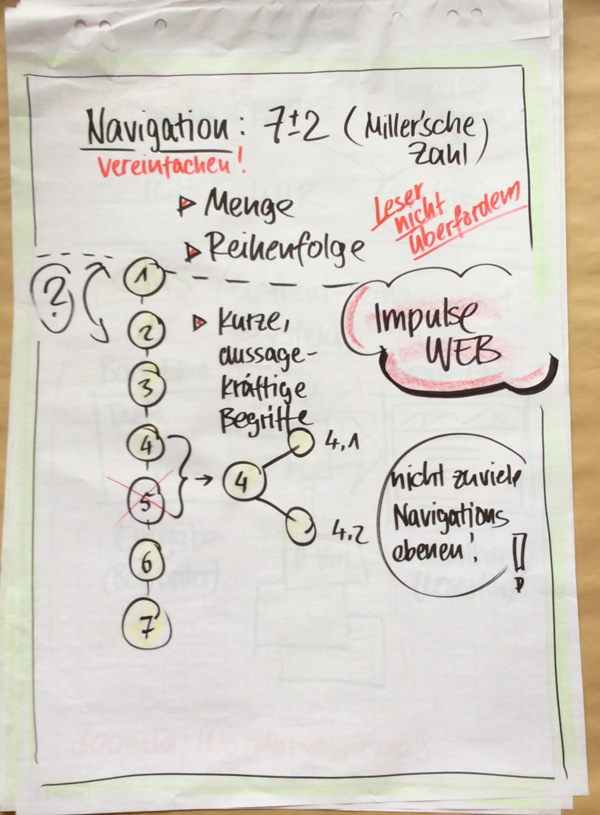 Navigation: 7±2 (Miller'sche
Zahl)
vereinfachen!
Menge
Reihenfolge
Leser
nicht
überfordern
?
1
2
3
4
5
6
7
Kurze,
aussage-
kräftige
Begriffe
Impulse
WEB
4
4,1
4,2
nicht zuviele
Navigations
ebenen!
!